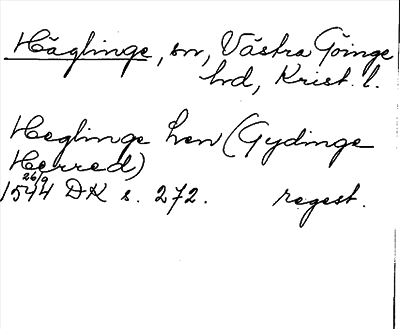 Häglinge, sn, Västra Göinge
hd, Krist. l.
Heglinge Len (Gydinge
Herred)
26/9
1544 DK s. 272. regest.